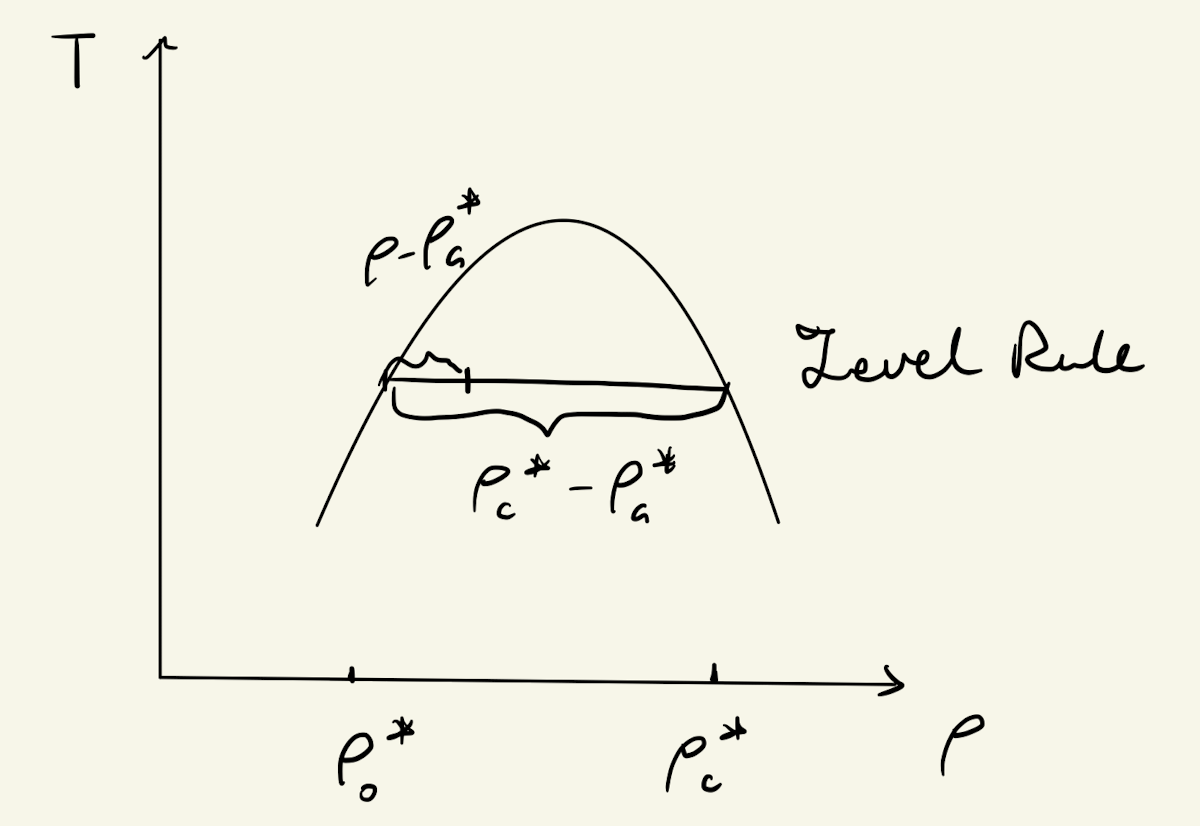 T
ρ-ρₐ*
Level Rule
ρ_c* - ρₐ*
ρ₀*
ρ_c*
ρ